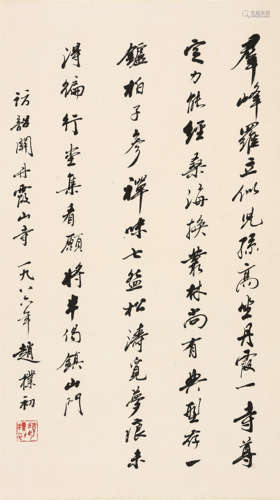 群峰羅立似児孫高坐丹霞一寺尊
定力能經桑海換叢林尚有典型存一
爐柏子參禪味七盌松濤覓夢痕未
得徧行堂集看願將半偈鎮山門
訪韶關丹霞山寺 一九八六年 趙樸初